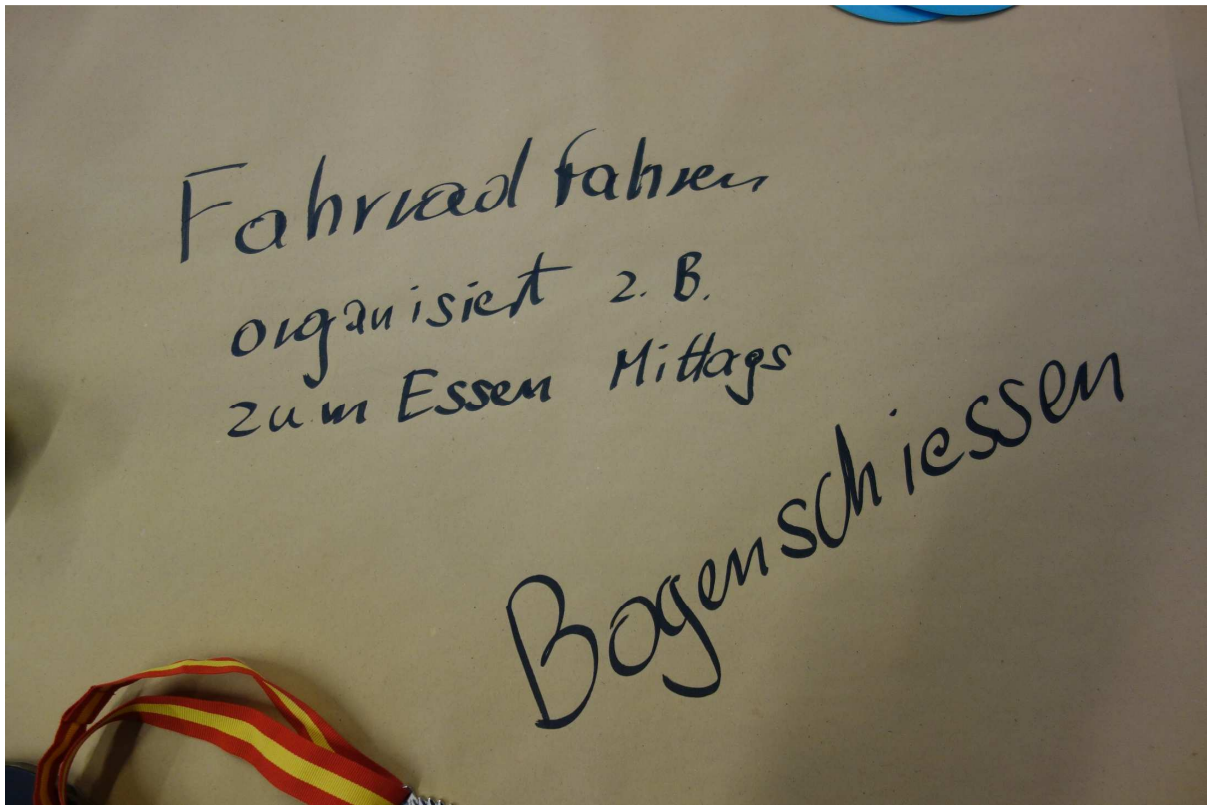 Fahrrad fahren
organisiert z.B.
zum Essen Mittags
Bogenschiessen